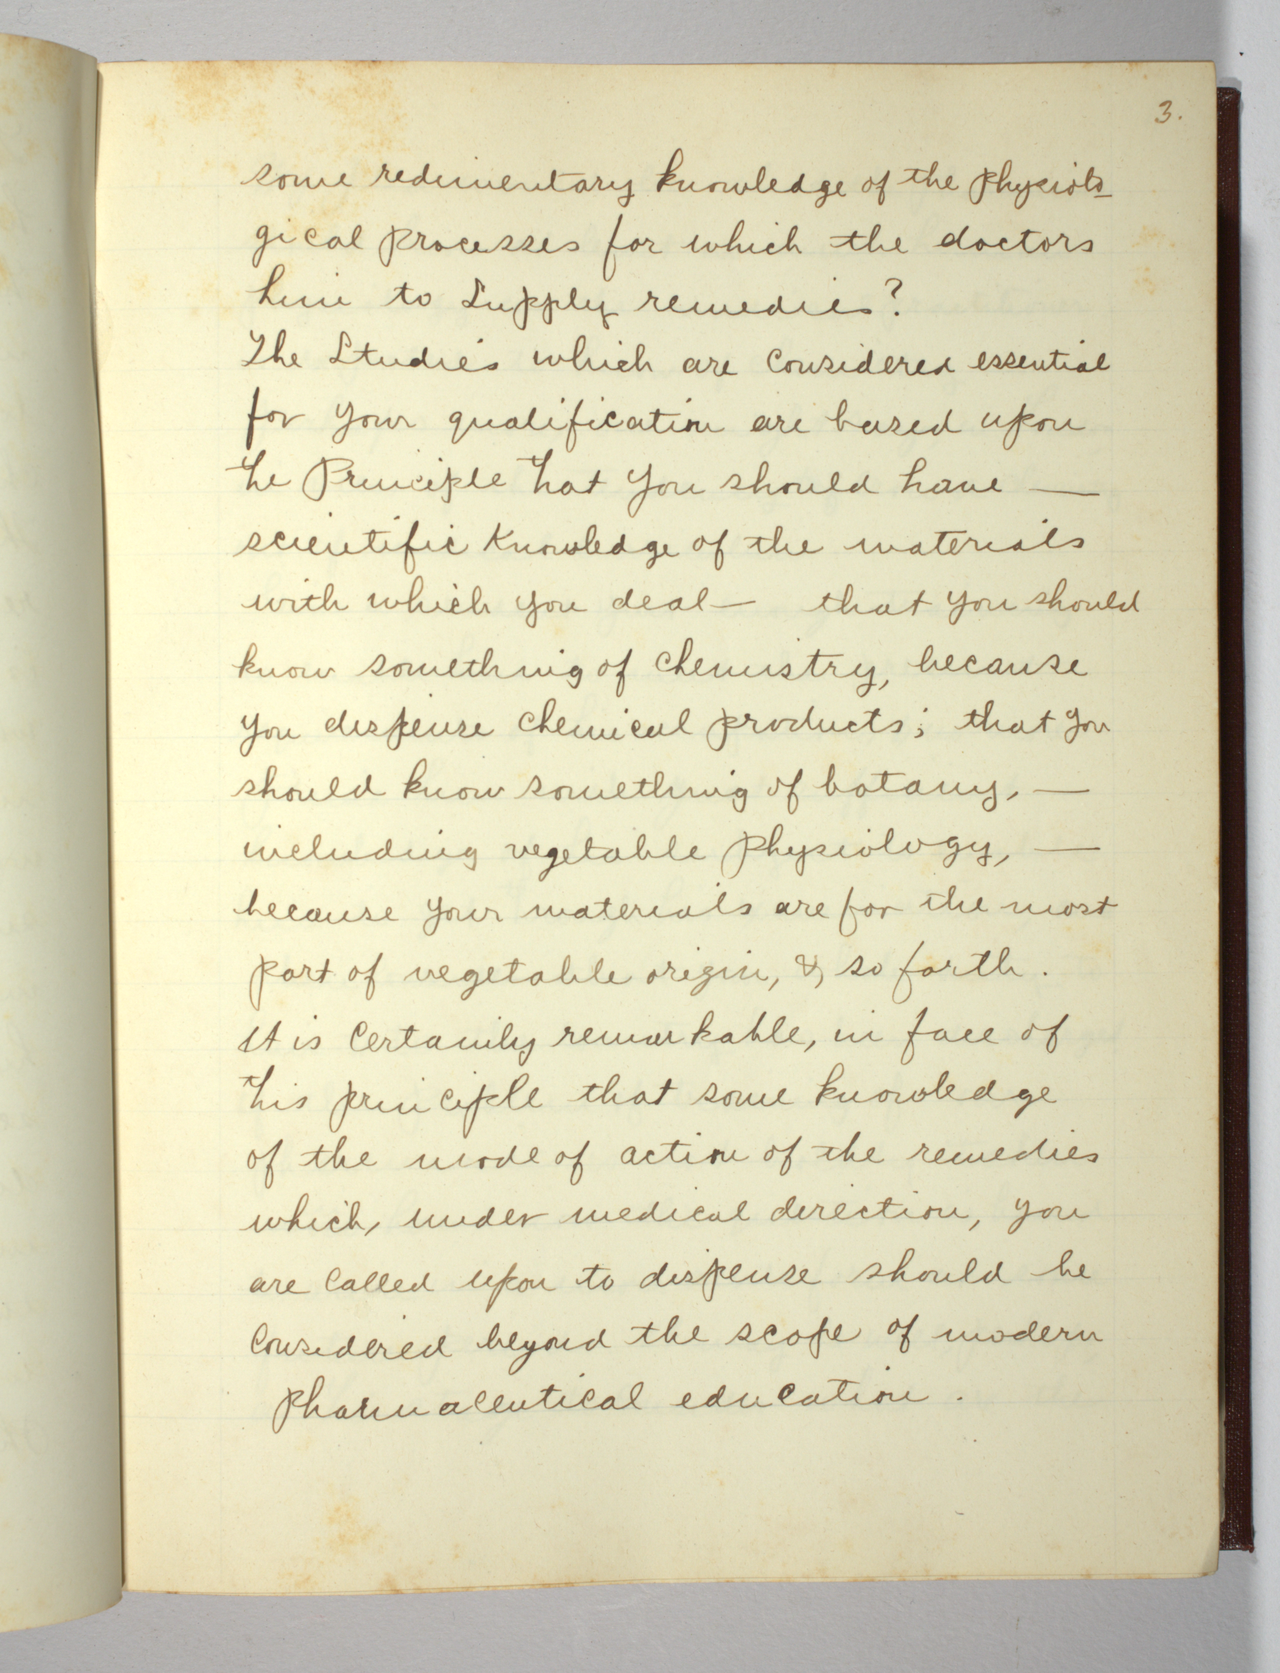 3.
some redimentary knowledge of the physiolo-
gical processes for which the doctors
him to Supply remedies?
The Studies which are Considered essential
for your qualification are based upon
the Principle that you should have —
scientific Knowledge of the materials
with which you deal — that you should
know something of Chemistry, because
you dispense Chemical products; that you
should know something of botany, —
including vegetable physiology, —
because your materials are for the most
part of vegetable origin, &, so forth.
It is Certainly remarkable, in face of
this principle that some knowledge
of the mode of action of the remedies
which, under medical direction, you
are Called upon to dispense should be
Considered beyond the scope of modern
pharmaceutical education.